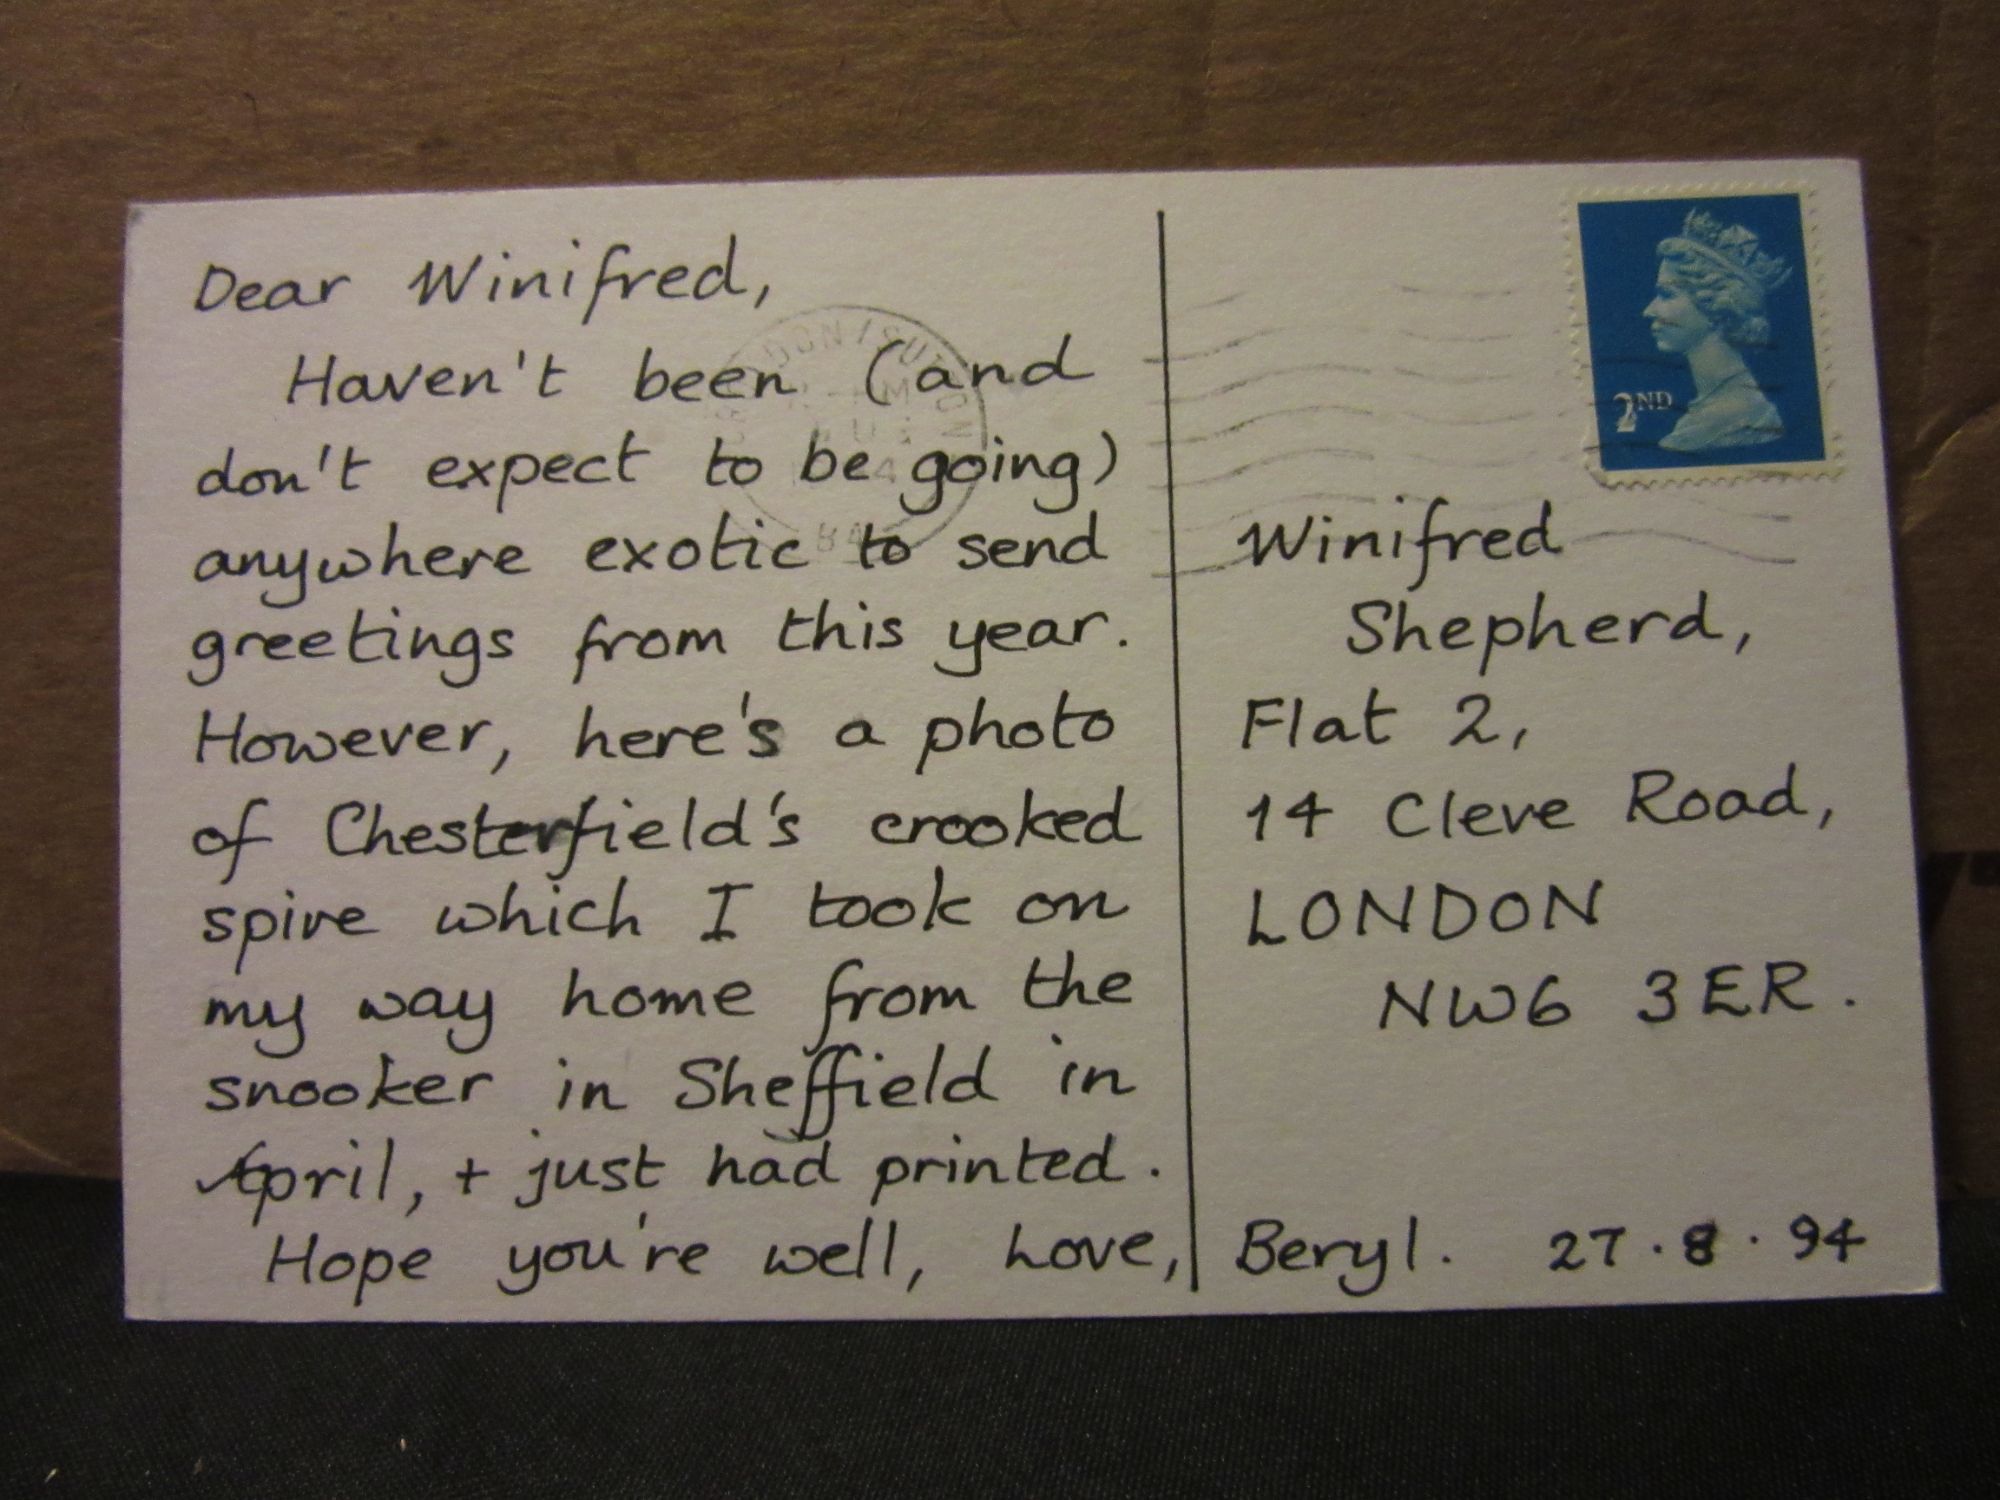 Dear Winifred,
Haven't been (and
don't expect to be going)
anywhere exotic to send
greetings from this year.
However, here's a photo
of Chesterfield's crooked
spire which I took on
my way home from the
snooker in Sheffield in
April, + just had printed.
Hope you're well, Love,
2ND
Winifred
Shepherd,
Flat 2,
14 Cleve Road,
LONDON
NW6 3ER.
Beryl. 27.8.94